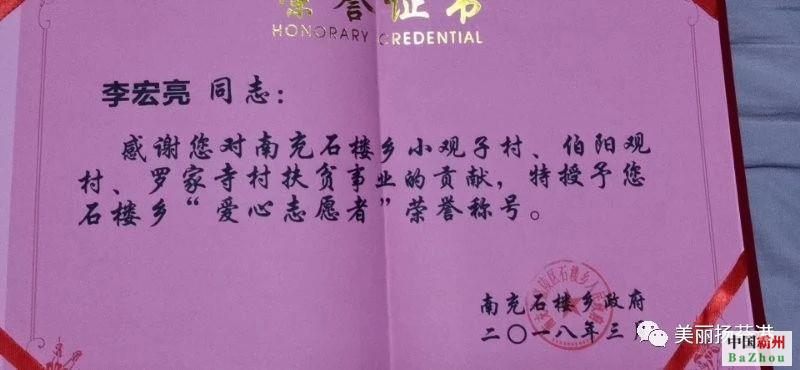 荣誉证书
HONORARY CREDENTIAL
李宏亮 同志：
感谢您对南充石楼乡小观子村、伯阳观
村、罗家寺村扶贫事业的贡献，特授予您
石楼乡“爱心志愿者”荣誉称号。
南充石楼乡政府
二〇一八年三月
美丽扬芬港
中国霸州
BaZhou